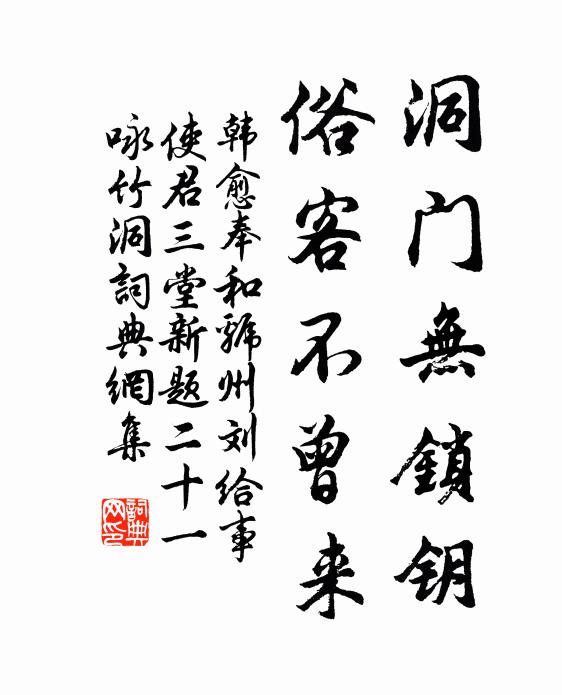 洞门無鎖钥
俗客不曾来
韩愈奉和虢州刘给事
使君三堂新题二十一
咏竹洞詞典網集
詞典网印